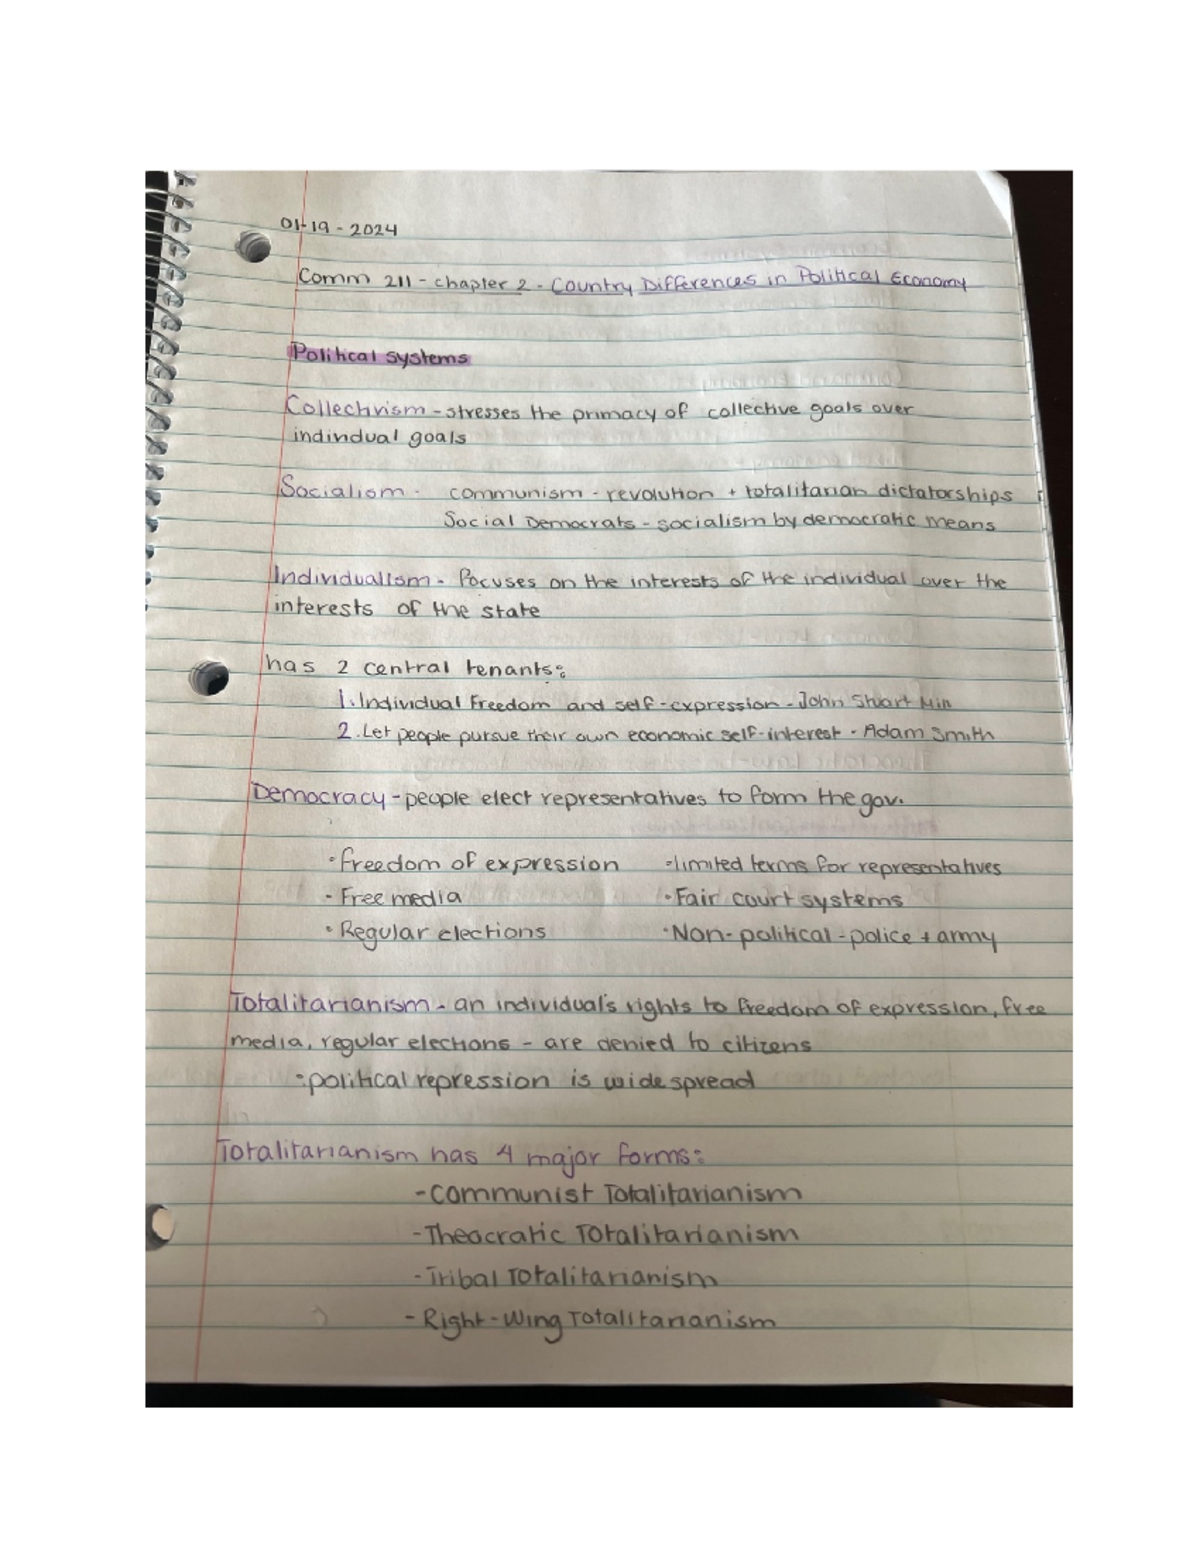 01-19-2024
Comm 211 - chapter 2 - Country Differences in Political Economy
Political systems
Collectivism - stresses the primacy of collective goals over
individual goals
Socialism - communism - revolution + totalitarian dictatorships
Social Democrats - socialism by democratic means
Individualism - Focuses on the interests of the individual over the
interests of the state
has 2 central tenants:
1. Individual Freedom and self-expression - John Stuart
2. Let people pursue their own economic self-interest - Adam Smith
Democracy - people elect representatives to form the gov.
• freedom of expression • limited terms for representatives
• Free media • Fair court systems
• Regular elections • Non-political - police + army
Totalitarianism - an individual's rights to freedom of expression, free
media, regular elections - are denied to citizens
• political repression is widespread
Totalitarianism has 4 major forms:
- Communist Totalitarianism
- Theocratic Totalitarianism
- Tribal Totalitarianism
- Right-Wing Totalitarianism